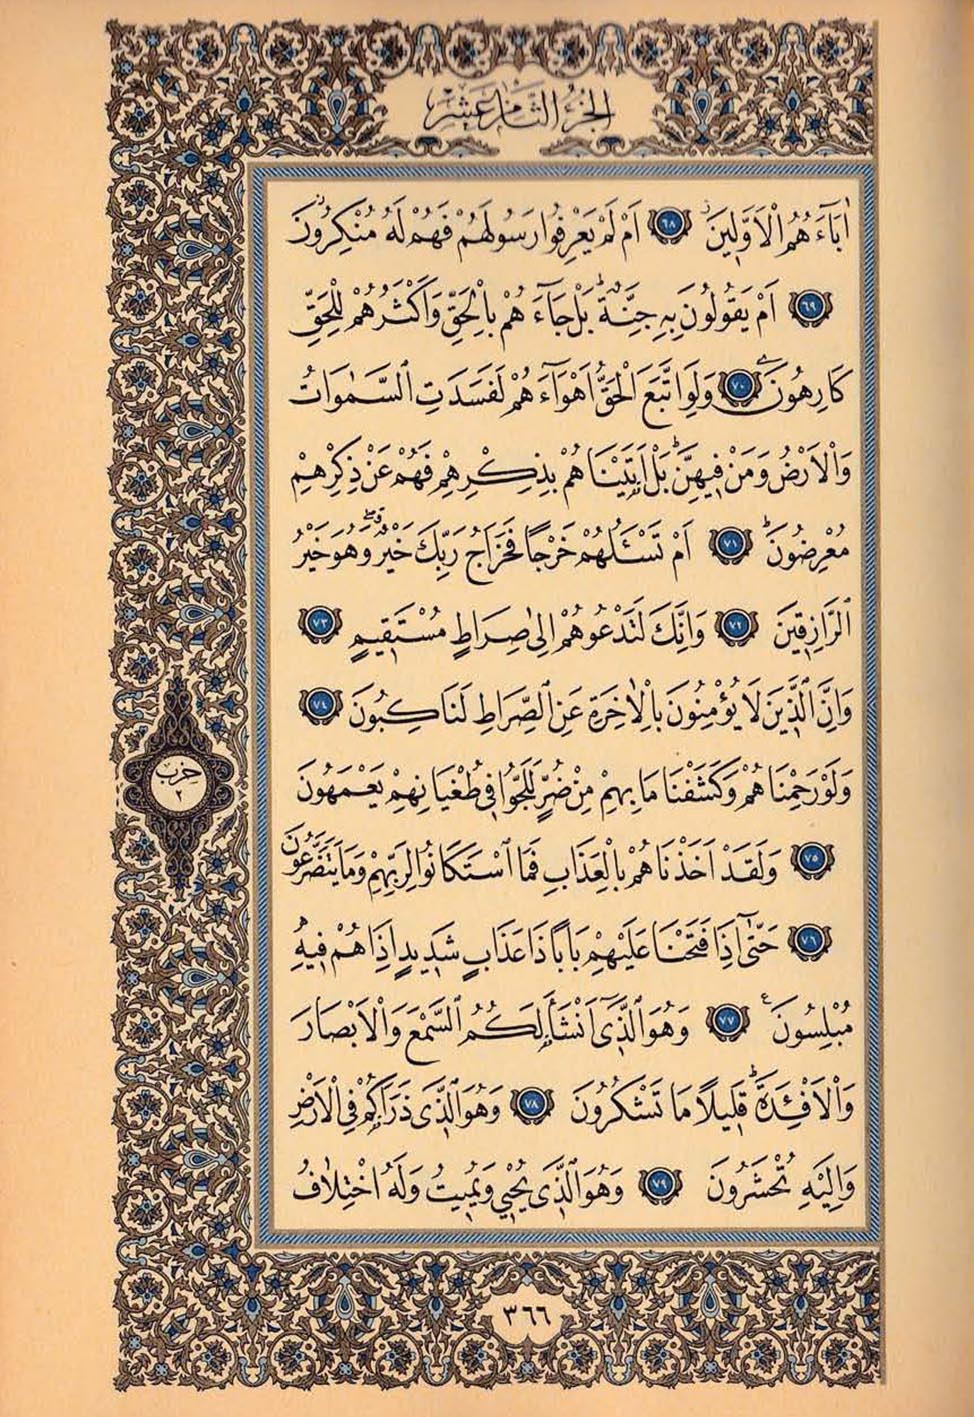 الجزء الثامن عشر
اٰبَٓاءَهُمُ الْاَوَّلٖينَۘ ﴿٦٨﴾ اَمْ لَمْ يَعْرِفُوا رَسُولَهُمْ فَهُمْ لَهُ مُنْكِرُونَۘ
﴿٦٩﴾ اَمْ يَقُولُونَ بِهٖ جِنَّةٌؕ بَلْ جَٓاءَهُمْ بِالْحَقِّ وَاَكْثَرُهُمْ لِلْحَقِّ
كَارِهُونَ ﴿٧٠﴾ وَلَوِ اتَّبَعَ الْحَقُّ اَهْوَٓاءَهُمْ لَفَسَدَتِ السَّمٰوَاتُ
وَالْاَرْضُ وَمَنْ فٖيهِنَّؕ بَلْ اَتَيْنَاهُمْ بِذِكْرِهِمْ فَهُمْ عَنْ ذِكْرِهِمْ
مُعْرِضُونَؕ ﴿٧١﴾ اَمْ تَسْـَٔلُهُمْ خَرْجًا فَخَرَاجُ رَبِّكَ خَيْرٌࣗ وَهُوَ خَيْرُ
الرَّازِقٖينَ ﴿٧٢﴾ وَاِنَّكَ لَتَدْعُوهُمْ اِلٰى صِرَاطٍ مُسْتَقٖيمٍ ﴿٧٣﴾
وَاِنَّ الَّذٖينَ لَا يُؤْمِنُونَ بِالْاٰخِرَةِ عَنِ الصِّرَاطِ لَنَاكِبُونَ ﴿٧٤﴾
وَلَوْ رَحِمْنَاهُمْ وَكَشَفْنَا مَا بِهِمْ مِنْ ضُرٍّ لَلَجُّوا فٖي طُغْيَانِهِمْ يَعْمَهُونَ
﴿٧٥﴾ وَلَقَدْ اَخَذْنَاهُمْ بِالْعَذَابِ فَمَا اسْتَكَانُوا لِرَبِّهِمْ وَمَا يَتَضَرَّعُونَ
﴿٧٦﴾ حَتّٰٓى اِذَا فَتَحْنَا عَلَيْهِمْ بَابًا ذَا عَذَابٍ شَدٖيدٍ اِذَا هُمْ فٖيهِ
مُبْلِسُونَ ع ﴿٧٧﴾ وَهُوَ الَّذٖٓي اَنْشَاَ لَكُمُ السَّمْعَ وَالْاَبْصَارَ
وَالْاَفْـِٔدَةَؕ قَلٖيلًا مَا تَشْكُرُونَ ﴿٧٨﴾ وَهُوَ الَّذٖي ذَرَاَكُمْ فِي الْاَرْضِ
وَاِلَيْهِ تُحْشَرُونَ ﴿٧٩﴾ وَهُوَ الَّذٖي يُحْيٖي وَيُمٖيتُ وَلَهُ اخْتِلَافُ
حزب
٢
٣٦٦